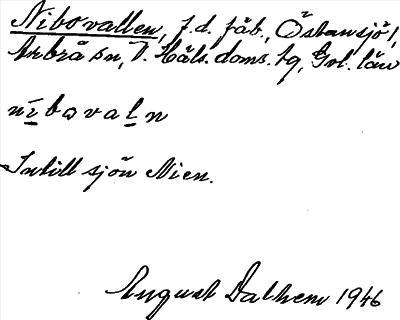 Nibovallen, f.d. fäb., Östansjö!,
Arbrå sn, V. Häls. doms. tg, Gvl. län
nibovaln
Intill sjön Nien.
August Dalhem 1946